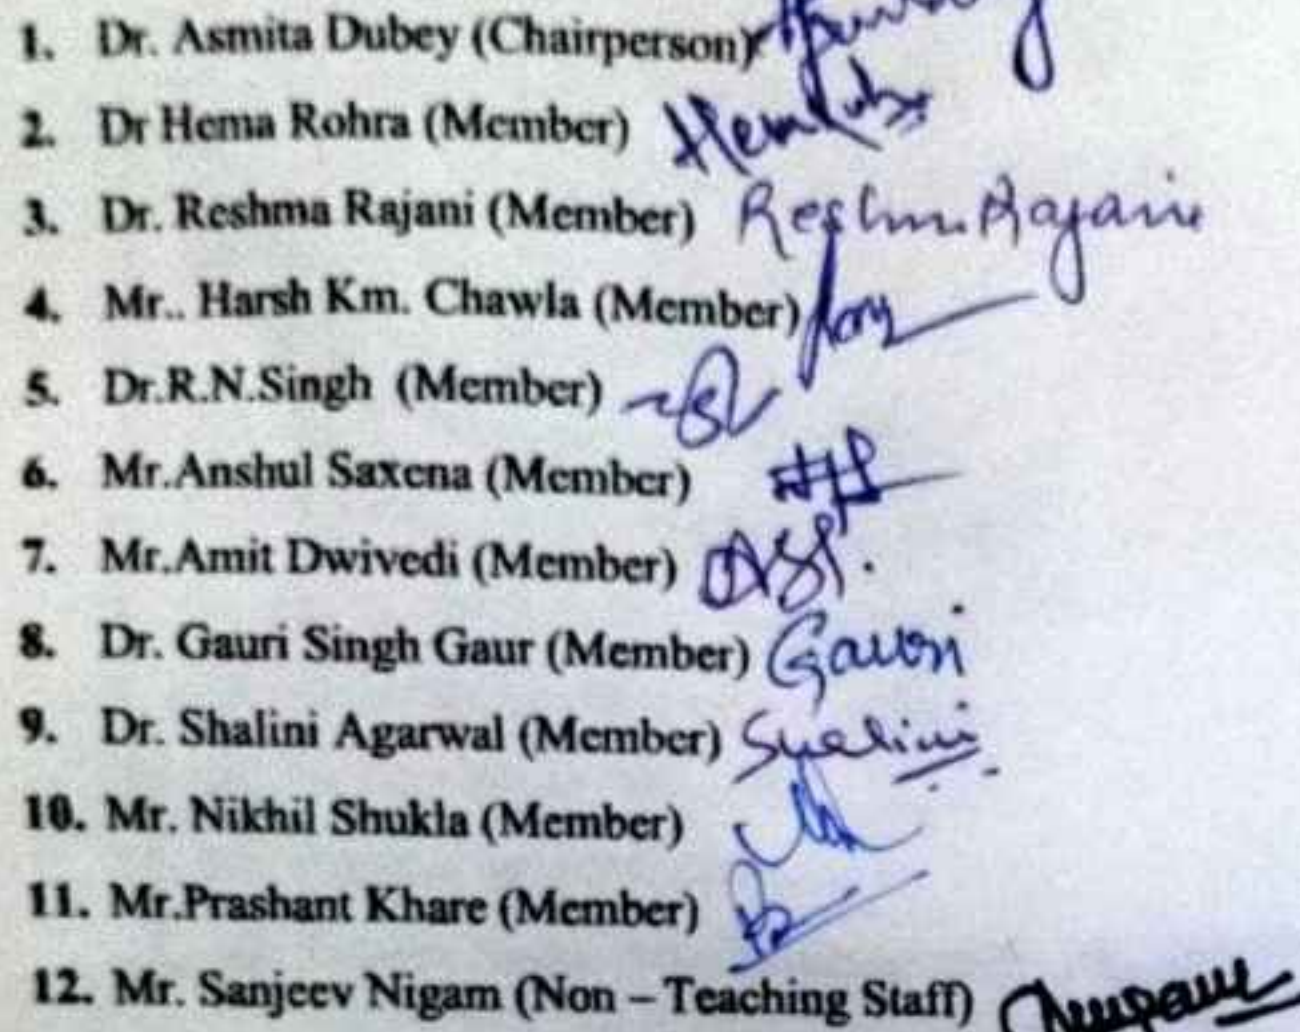 1. Dr. Asmita Dubey (Chairperson)
2. Dr Hema Rohra (Member)
3. Dr. Reshma Rajani (Member) Reshma Rajani
4. Mr.. Harsh Km. Chawla (Member)
5. Dr.R.N.Singh (Member)
6. Mr.Anshul Saxena (Member)
7. Mr.Amit Dwivedi (Member)
8. Dr. Gauri Singh Gaur (Member) Gauri
9. Dr. Shalini Agarwal (Member) Shalini
10. Mr. Nikhil Shukla (Member)
11. Mr.Prashant Khare (Member)
12. Mr. Sanjeev Nigam (Non – Teaching Staff)